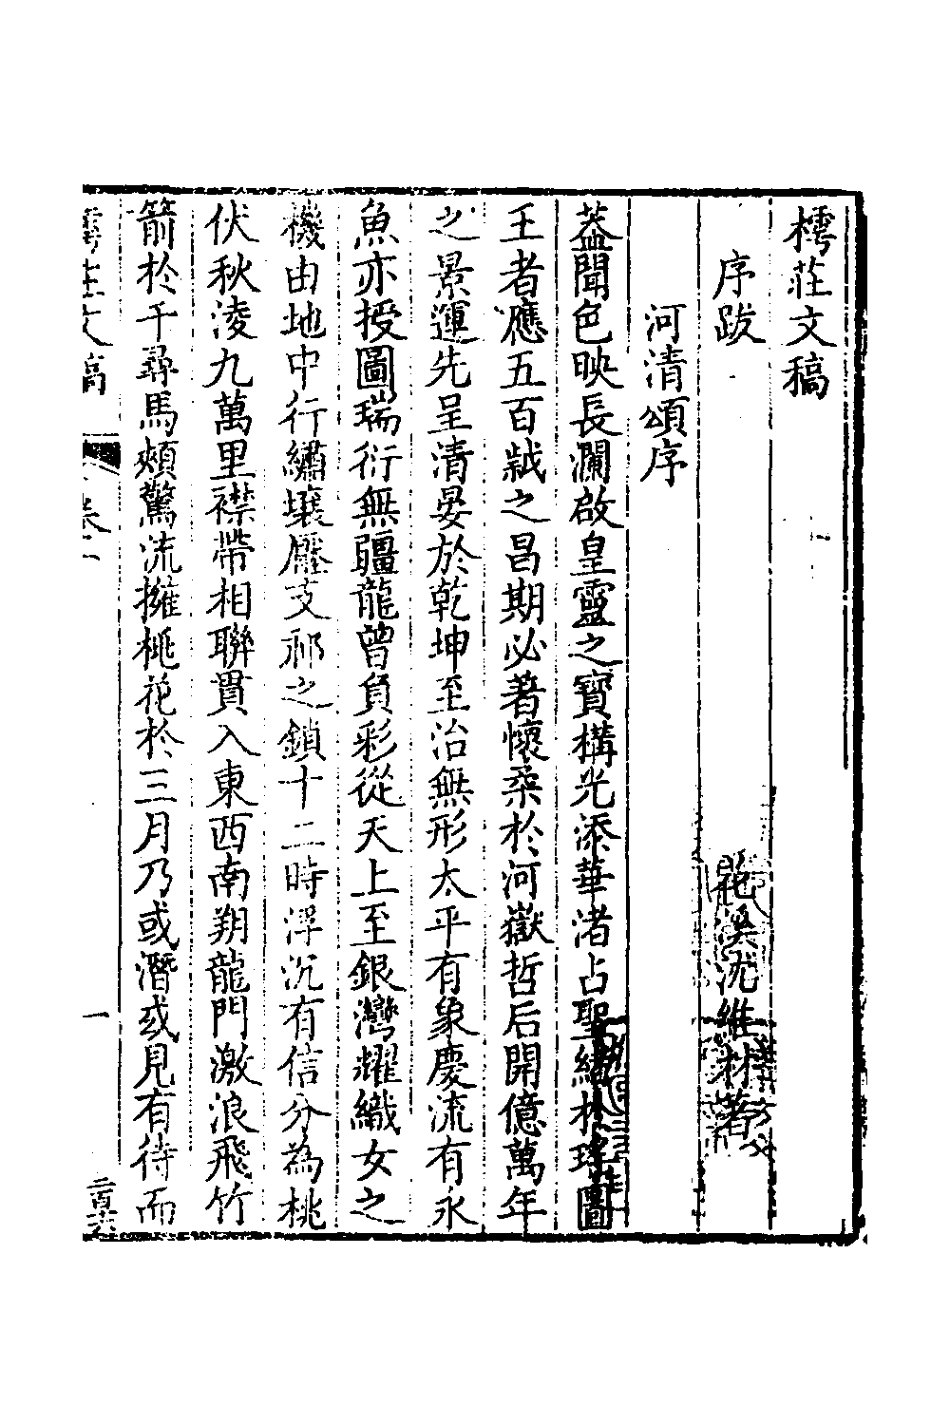 樗莊文稿
序跋
苕溪沈維材著
河清頌序
葢聞色映長瀾啟皇靈之寶構光添華渚占聖緒於瑤圖
王者應五百㦸之昌期必著懷桑於河嶽哲后開億萬年
之景運先呈清晏於乾坤至治無形太平有象慶流有永
魚亦授圖瑞衍無疆龍曾負彩從天上至銀灣耀織女之
機由地中行繡壤壓支祁之鎖十二時浮沉有信分為桃
伏秋淩九萬里襟帶相聯貫入東西南朔龍門激浪飛竹
箭於千尋馬頰驚流擁桃花於三月乃或潛或見有待而
樗莊文稿
卷二
一
二百六